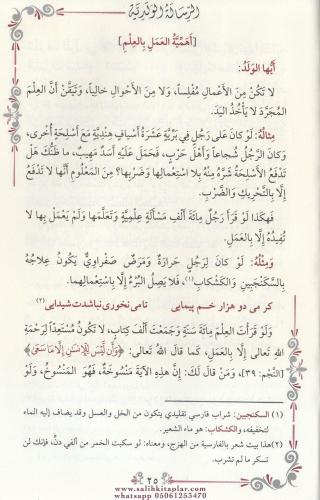 الرِّسَالَةُ الْوَلَدِيَّة
[أَهَمِّيَّةُ الْعَمَلِ بِالْعِلْمِ]
أَيُّهَا الْوَلَدُ:
لَا تَكُنْ مِنَ الْأَعْمَالِ مُفْلِساً، وَلَا مِنَ الْأَحْوَالِ خَالِياً، وَتَيَقَّنْ أَنَّ الْعِلْمَ
الْمُجَرَّدَ لَا يَأْخُذُ الْيَدَ.
مِثَالُهُ: لَوْ كَانَ عَلَى رَجُلٍ فِي بَرِّيَّةٍ عَشَرَةُ أَسْيَافٍ هِنْدِيَّةٍ مَعَ أَسْلِحَةٍ أُخْرَى،
وَكَانَ الرَّجُلُ شُجَاعاً وَأَهْلَ حَرْبٍ، فَحَمَلَ عَلَيْهِ أَسَدٌ مَهِيبٌ، مَا ظَنُّكَ هَلْ
تَدْفَعُ الْأَسْلِحَةُ شَرَّهُ مِنْهُ بِلَا اسْتِعْمَالِهَا وَضَرْبِهَا؟ مِنَ الْمَعْلُومِ أَنَّهَا لَا تَدْفَعُ
إِلَّا بِالتَّحْرِيكِ وَالضَّرْبِ.
فَهَكَذَا لَوْ قَرَأَ رَجُلٌ مِائَةَ أَلْفِ مَسْأَلَةٍ عِلْمِيَّةٍ وَتَعَلَّمَهَا وَلَمْ يَعْمَلْ بِهَا لَا
تُفِيدُهُ إِلَّا بِالْعَمَلِ.
وَمِثْلُهُ: لَوْ كَانَ لِرَجُلٍ حَرَارَةٌ وَمَرَضٌ صَفْرَاوِيٌّ يَكُونُ عِلَاجُهُ
بِالسَّكَنْجَبِينِ وَالْكَشْكَابِ(١)، فَلَا يَحْصُلُ الْبُرْءُ إِلَّا بِاسْتِعْمَالِهِمَا.
كر مى دو هزار خم پيمايى تامى نخورى نباشدت شيدايى (٢)
وَلَوْ قَرَأْتَ الْعِلْمَ مِائَةَ سَنَةٍ وَجَمَعْتَ أَلْفَ كِتَابٍ، لَا تَكُونُ مُسْتَعِدّاً لِرَحْمَةِ
اللهِ تَعَالَى إِلَّا بِالْعَمَلِ، كَمَا قَالَ اللهُ تَعَالَى: ﴿وَأَن لَّيْسَ لِلْإِنسَٰنِ إِلَّا مَا سَعَىٰ﴾
[النَّجْم: ٣٩]، وَمَنْ قَالَ لَكَ: إِنَّ هَذِهِ الْآيَةَ مَنْسُوخَةٌ، فَهُوَ الْمَنْسُوخُ، وَلَوْ
(١) السكنجبين: شراب فارسي تقليدي يتكون من الخل والعسل وقد يضاف إليه الماء
لتخفيفه، والكشكاب: هو ماء الشعير.
(٢) هذا بيت شعر بالفارسية من الهزج، ومعناه: لو سكبت الخمر من ألفي دنٍّ، فإنك لن
تسكر ما لم تشرب.
٢٥
www.salihkitaplar.com
whatsapp 05061253470